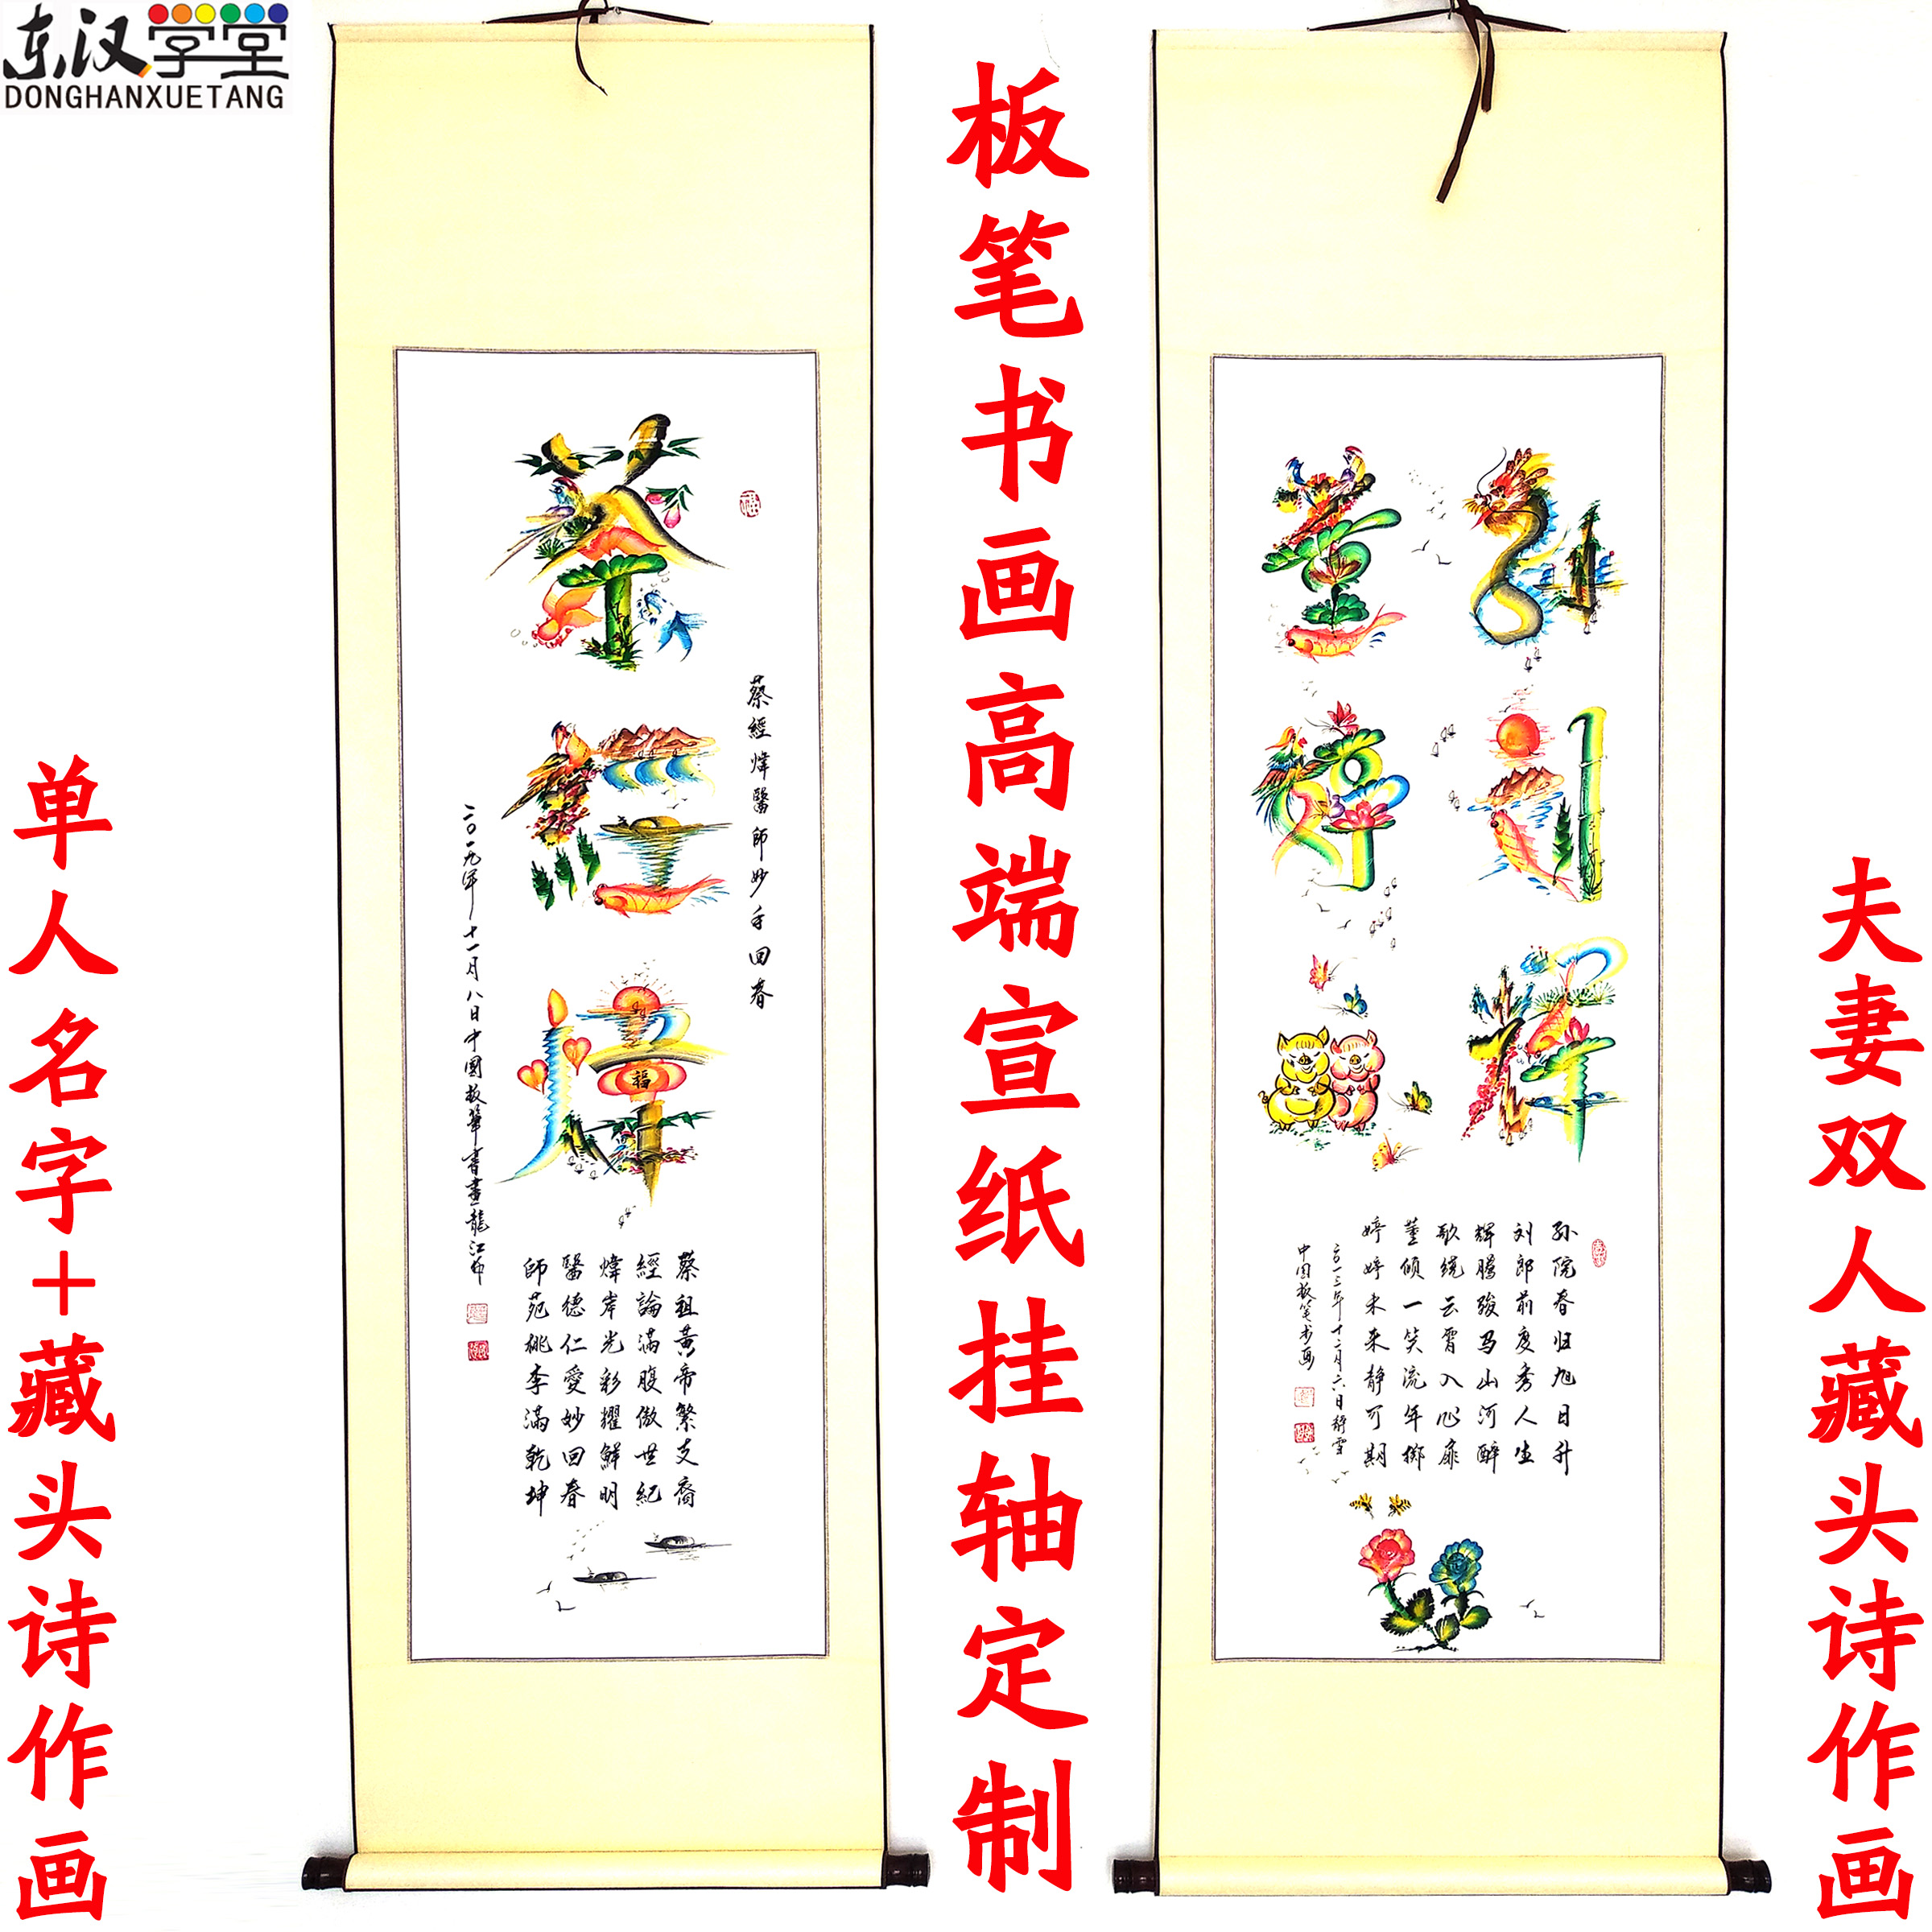 东汉学堂
DONGHANXUETANG
单人名字+藏头诗作画
板笔书画高端宣纸挂轴定制
夫妻双人藏头诗作画
蔡
經
煒
福
福
蔡經煒醫師妙手回春
二〇一九年十一月八日中國板筆書畫龍江
蔡祖黃帝繁支裔
經論滿腹傲世紀
煒岸光彩耀鮮明
醫德仁愛妙回春
師苑桃李滿乾坤
孙
刘
辉
董
婷
孙院春归旭日升
刘郎前度秀人生
辉腾骏马山河醉
歌绕云霄入心扉
董倾一笑流年掷
婷婷未来静可期
中国板笔书画